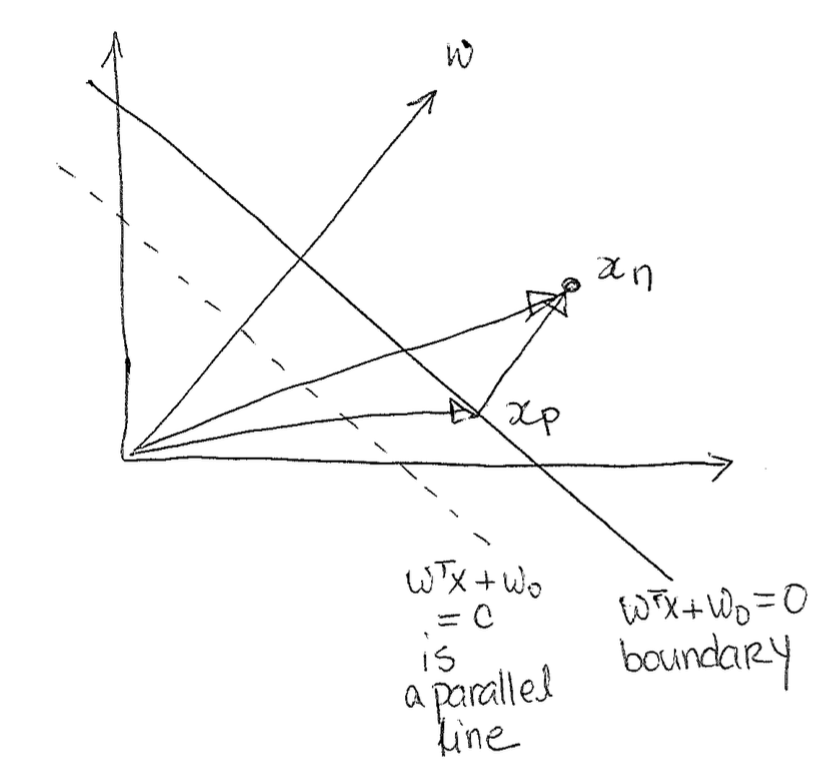 w
xn
xp
wᵀx + w₀
= c
is
a parallel
line
wᵀx + w₀ = 0
boundary